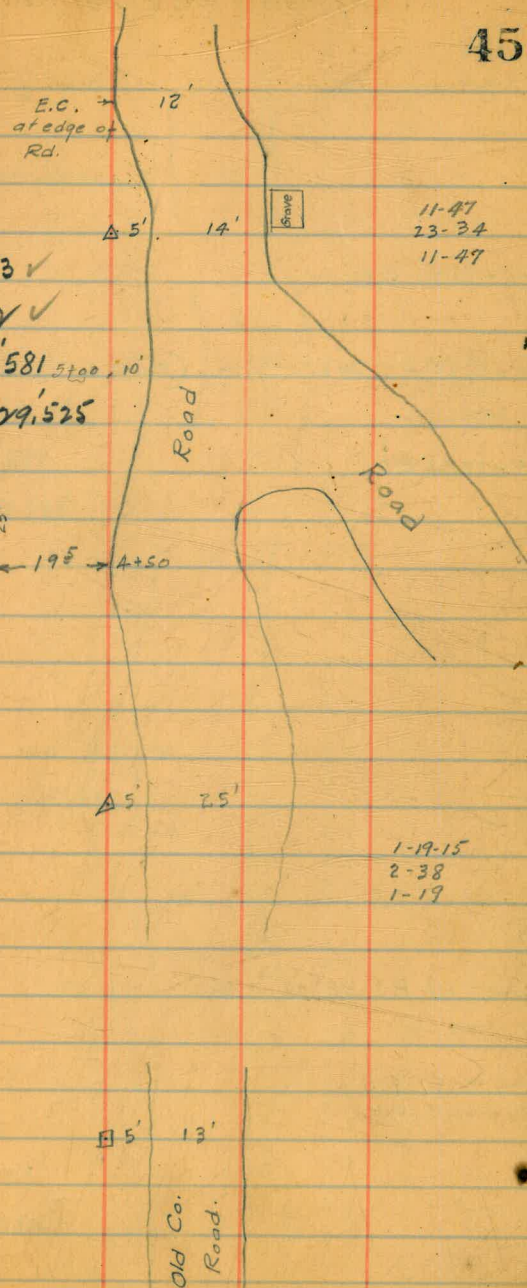 45
E.C. 12'
at edge of
Rd.
Grave
11-47
5' 14' 23-34
11-47
3 ✓
✓
581 5+90, 10'
29,525
Road
Road
19⁵ A+50
5' 25'
1-19-15
2-38
1-19
5' 13'
Old Co.
Road.